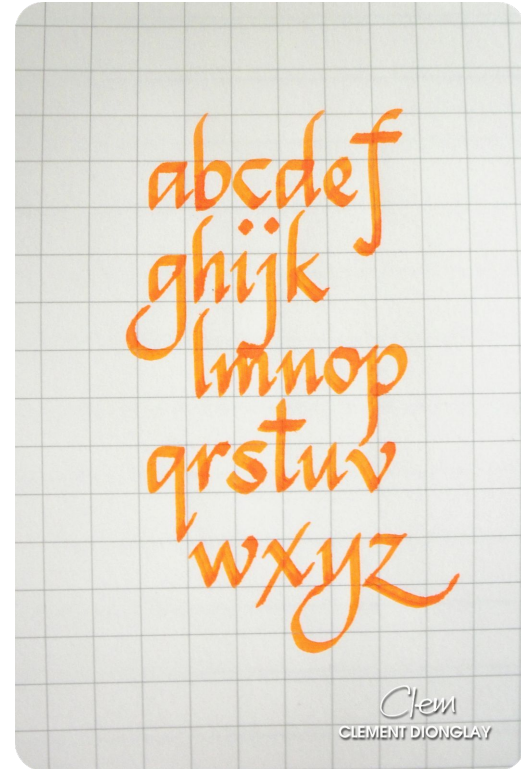 abcdef
ghijk
lmnop
qrstuv
wxyz
Clem
CLEMENT DIONGLAY